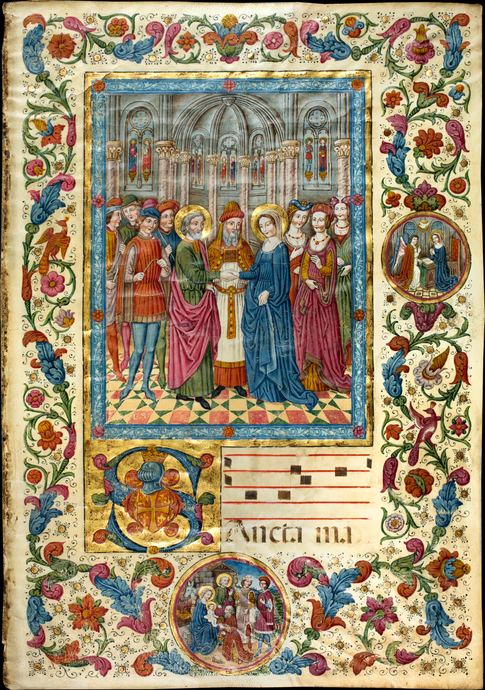 SAncta ma